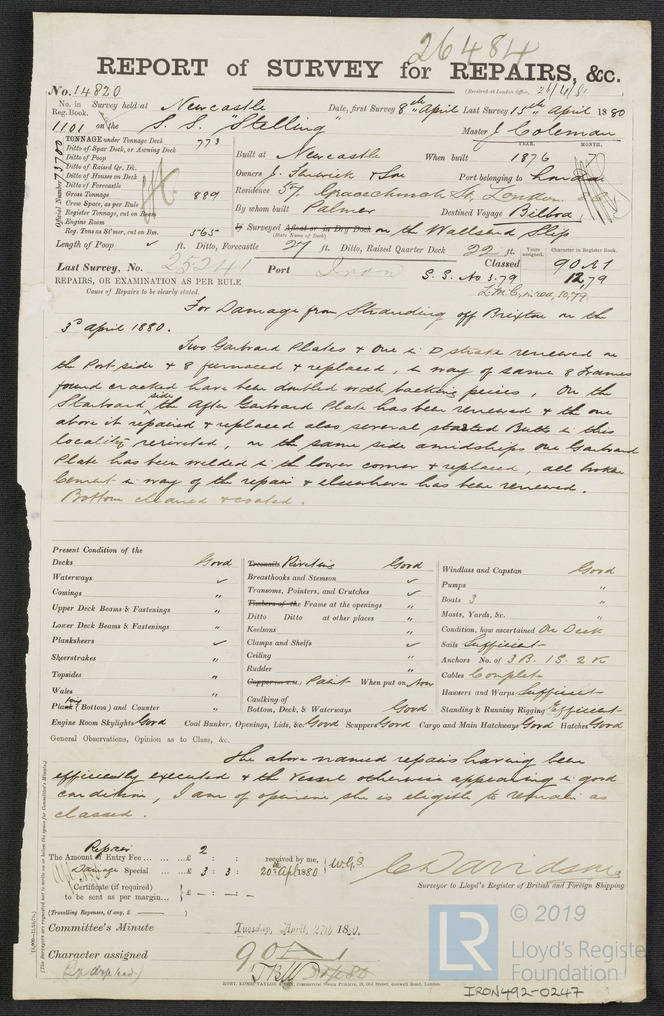 26484
REPORT of SURVEY for REPAIRS, &c.
No. 14820
(Received at London Office,
No. in Reg. Book. Survey held at Newcastle Date, first Survey 8th April Last Survey 15th April 1880
1101 on the S.S. "Stelling" Master J Coleman
TONNAGE under Tonnage Deck 773
Ditto of Spar Deck, or Awning Deck
Ditto of Poop
Ditto of Raised Qr. Dk.
Ditto of Houses on Deck
Ditto of Forecastle
Gross Tonnage 889
Crew Space, as per Rule
Register Tonnage, cut on Beam
Engine Room
Reg. Tons as Str., cut on Bm. 565
Official Number 73700
Built at Newcastle When built 1876
YEAR. MONTH.
Owners J. Fenwick & Son Port belonging to London
Residence 57 Gracechurch St, London
By whom built Palmer Destined Voyage Bilboa
If Surveyed Afloat or in Dry Dock on the Wallsend Slip
(State Name of Dock)
Length of Poop ft. Ditto, Forecastle 27 ft. Ditto, Raised Quarter Deck 22 ft.
Years assigned. Character in Register Book.
Last Survey, No. 25241 Port Iron Classed 90 A1
S.S. No 3.79 12,79
REPAIRS, OR EXAMINATION AS PER RULE
Cause of Repairs to be clearly stated.
For Damage from Stranding off Brixton on the
3d April 1880.
Two Garboard Plates & One in D strake renewed on
the Port side & 8 furnaced & replaced, in way of same 8 Frames
found cracked have been doubled with backing pieces, On the
Starboard side the After Garboard Plate has been renewed & the one
above it repaired & replaced also several started Butts in this
locality rerivetted, on the same side amidships one Garboard
Plate has been welded in the lower corner & replaced, all broken
Cement in way of the repair & elsewhere has been renewed.
Bottom cleaned & coated.
Present Condition of the
Decks Good
Waterways
Comings "
Upper Deck Beams & Fastenings "
Lower Deck Beams & Fastenings "
Planksheers
Sheerstrakes "
Topsides "
Wales "
Plank (Bottom) and Counter "
Treenails Riveting Good
Breasthooks and Stemson
Transoms, Pointers, and Crutches
Timbers of the Frame at the openings "
Ditto Ditto at other places "
Keelsons "
Clamps and Shelfs
Ceiling "
Rudder "
Copper Paint When put on Now
Caulking of
Bottom, Deck, & Waterways Good
Windlass and Capstan Good
Pumps "
Boats 3 "
Masts, Yards, &c. "
Condition, how ascertained On Deck
Sails Sufficient
Anchors No. of 3 B. 1 S. 2 K
Cables Complete
Hawsers and Warps Sufficient
Standing & Running Rigging Efficient
Engine Room Skylights Good Coal Bunker, Openings, Lids, &c Good Scuppers Good Cargo and Main Hatchways Good Hatches Good
General Observations, Opinion as to Class, &c.
The above named repairs having been
efficiently executed & the Vessel otherwise appearing in good
condition, I am of opinion she is eligible to remain as
classed.
Repair
The Amount of Entry Fee £ 2 : :
Damage Special £ 3 : 3 :
Certificate (if required)
to be sent as per margin. £ - : - : -
received by me,
20th Apl 1880
W.G.S.
C Davidson
Surveyor to Lloyd's Register of British and Foreign Shipping
(Travelling Expenses, if any, £ )
Committee's Minute Tuesday, April 27th 1880.
Character assigned 90 A1
ROBT. EDMD. TAYLOR & SON, Commercial Steam Printers, 19, Old Street, Goswell Road, London.
(The Surveyors are requested not to write on or below the space for Committee's Minute.)
LR
© 2019
Lloyd's Register
Foundation
IRON492-0247